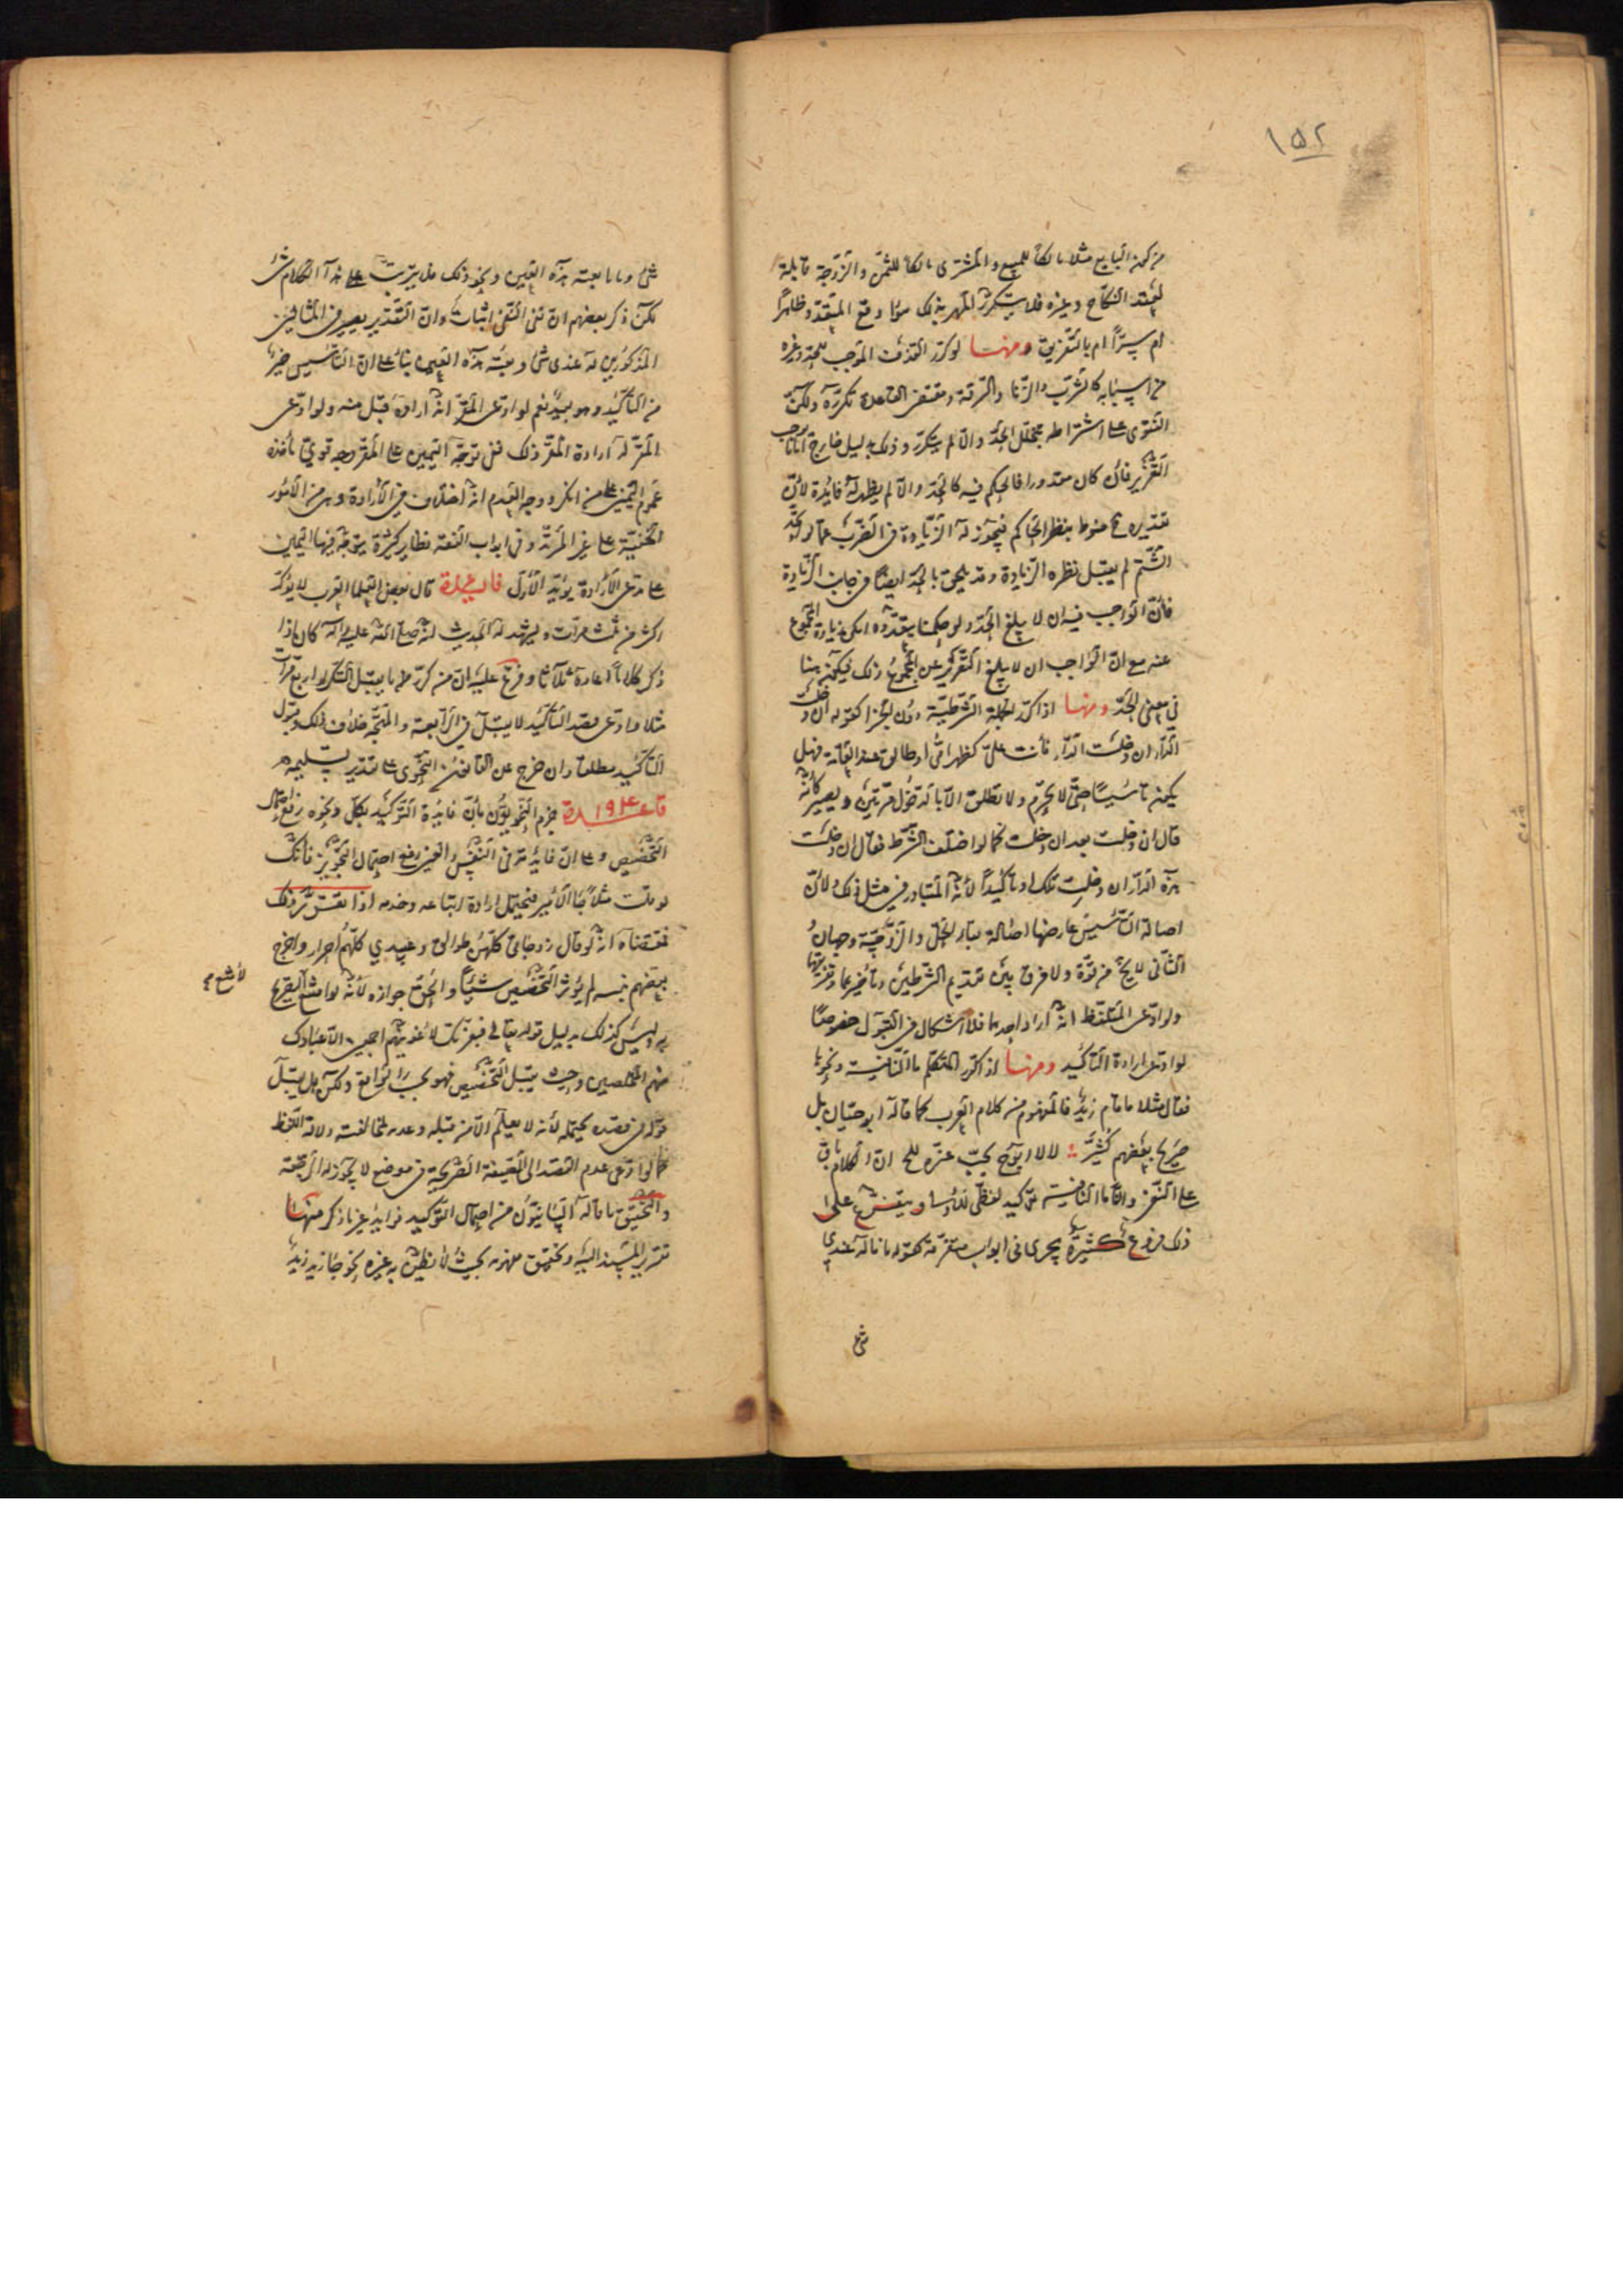 ١٥٢
من كون البايع مثلا مالكا للمبيع والمشترى مالكا للثمن والزوجة قابلة
لعقد النكاح وغيره فلا يتكرر المهر بذلك سواء وقع المتعقد وظاهرا
ام سرا ام بالتفريق ومنها لو كرر القذف الموجب للحد وغيره
من اسبابه كالشرب والزنا والسرقة ومقتضى القاعدة تكرره ولكن
الفتوى على اشتراطه بتخلل الحد والا لم يتكرر وذلك بدليل خارج اما موجب
التعزير فان كان مقدورا فالحكم فيه كالحد والا لم يظهر له فايدة لان
تقديره منوط بنظر الحاكم فيجوز له الزيادة في الضرب عما لو تحد
الشتم لم يقبل نظره الزيادة وقد يلحق بالحد ايضا في جانب الزيادة
فان الواجب فيه ان لا يبلغ الحد ولو حكمنا بتعدده امكن زيادة المجموع
عنه مع ان الواجب ان لا يبلغ التعزير عن المجموع ذلك فيكون هنا
في معنى الحد ومنها اذا كرر الجملة الشرطية دون الجزا كقوله ان دخلت
الدار ان دخلت الدار فانت على كظهر امى او طالق عند العامة فهل
يكون تاسيسا حتى لا تحرم ولا تطلق الا بالدخول مرتين ويصير كانه
قال ان دخلت بعد ان دخلت كما لو اختلف الشرط فقال ان دخلت
هذه الدار ان دخلت تلك او تاكيدا لانه المتبادر في مثل ذلك ولان
اصالة التاسيس عارضها اصالة بقاء الحل والزوجية وجهان
الثانى لا يخ من قوة ولا فرق بين تقديم الشرطين وتأخيرهما وتفريقهما
ولو ادعى المتلفظ انه اراد احدهما فلا اشكال في القبول خصوصا
لو ادعى ارادة التأكيد ومنها اذا كرر المتكلم ما النافية ونحوها
فقال مثلا ما ما قام زيد فالمفهوم من كلام العرب كما قاله ابو حيان بل
صرح بعضهم كثير لا لا ابوح بحب عزة الخ ان الكلام باق
على النفى وان ما الثانية تاكيد لفظى للاولى ويتفرع على
ذلك فروع كثيرة يجرى في ابواب متفرقة كقوله ما ماله عندي
شئ
شئ وما ما بعته هذه العين ونحو ذلك هل يترتب على هذا الكلام شئ
لكن ذكر بعضهم ان نفى النفى اثبات وان التقدير يصير في المثالين
المذكورين له عندى شئ وبعته هذه العين بناء على ان التاسيس خير
من التأكيد وهو بعيد نعم لو ادعى المقر انه اراده قبل منه ولو ادعى
المقر له ارادة المقر ذلك ففى توجه اليمين على المقر وجه قوى مأخذه
عموم اليمين على من انكر ووجه العدم انه اختلاف في الارادة وهى من الامور
الخفية على غير المريد وفى ابواب الفقه نظاير كثيرة يتوجه فيها اليمين
على مدعى الارادة يؤيد الاول قاعدة قال بعض العلما العرب لا يؤكد
اكثر من ثلث مرات ويشهد له الحديث انه صلى الله عليه واله كان اذا
ذكر كلاما اعاده ثلاثا وفرع عليه ان من كرر ما يقبل التكرار اربع مرات
مثلا وادعى قصد التأكيد لا يقبل في الرابعة والمتجه خلاف ذلك وقبول
التأكيد مطلقا وان خرج عن القانون النحوى على تقدير تسليمه
قاعدة ١٩٤ جزم النحويون بان فايدة التوكيد بكل ونحوه رفع احتمال
التخصيص وعلى ان فايدته في النفس والعين رفع احتمال التجويز فانك
لو قلت مثلا جا الامير فيحتمل ارادة اتباعه وخدمه اذا تقرر ذلك
فمقتضاه انه لو قال زوجاتى كلهن طوالق وعبيدي كلهم احرار واخرج
بعضهم بنيته لم يؤثر التخصيص شيئا والحق جوازه لانه لو امتنع التصريح
به وليس كذلك بدليل قوله تعالى فبعزتك لاغوينهم اجمعين الا عبادك
منهم المخلصين وحيث يقبل التخصيص فهو بحسب الواقع ولكن هل يقبل
قوله في قصده يحتمله لانه لا يعلم الا من قبله وعدمه لمخالفته دلالة اللفظ
كما لو ادعى عدم القصد الى الصيغة الصريحة في موضع لا يجوز له الرجعة
والتحقيق ما قاله البيانيون من احتمال التوكيد فوايد غير ما ذكر منها
تقرير المسند اليه وتحقيق مفهومه بحيث لا يظن به غيره نحو جا زيد زيد